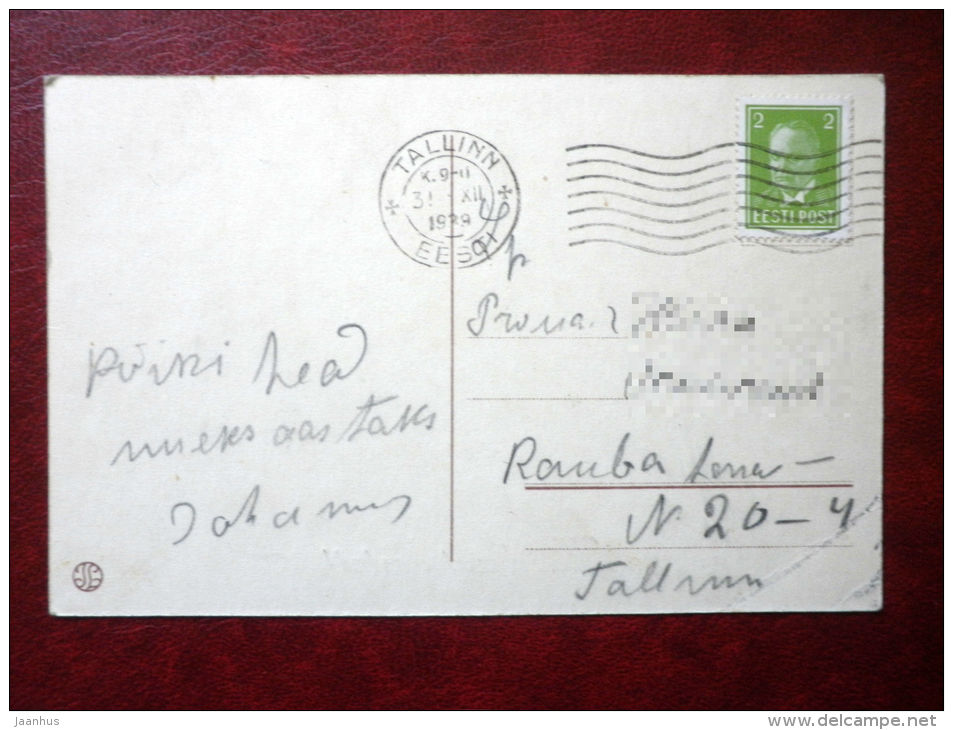 TALLINN
K. 9-11
31 XII
1939
EESTI
2 2
EESTI POST
Kõiki head
uueks aastaks
Johannes
Prona.
Rauba
N. 20-4
Tallinn
Jaanhus
www.delcampe.net